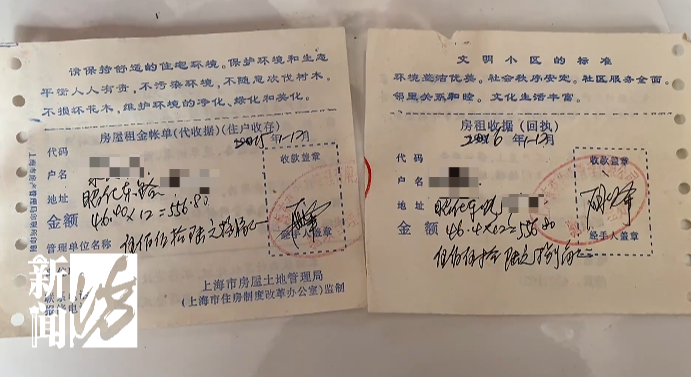 请保持舒适的住宅环境。保护环境和生态
平衡人人有责，不污染环境，不随意砍伐树木。
不损坏花木，维护环境的净化、绿化和美化。
房屋租金帐单(代收据)(住户收存)
2015年1-12月
代码
收款盖章
户名
地址 昭化东路
金额 46.40×12=556.80
经手人盖章
管理单位名称 伍佰伍拾陆元捌角正
上海市房屋土地管理局
(上海市住房制度改革办公室)监制
文明小区的标准
环境整洁优美。社会秩序安定。社区服务全面。
邻里关系和睦。文化生活丰富。
房租收据(回执)
2016年1-12月
代码
收款盖章
户名
地址 昭化东路
金额 46.4×12=556.80
经手人盖章
伍佰伍拾陆元捌角正
新闻坊